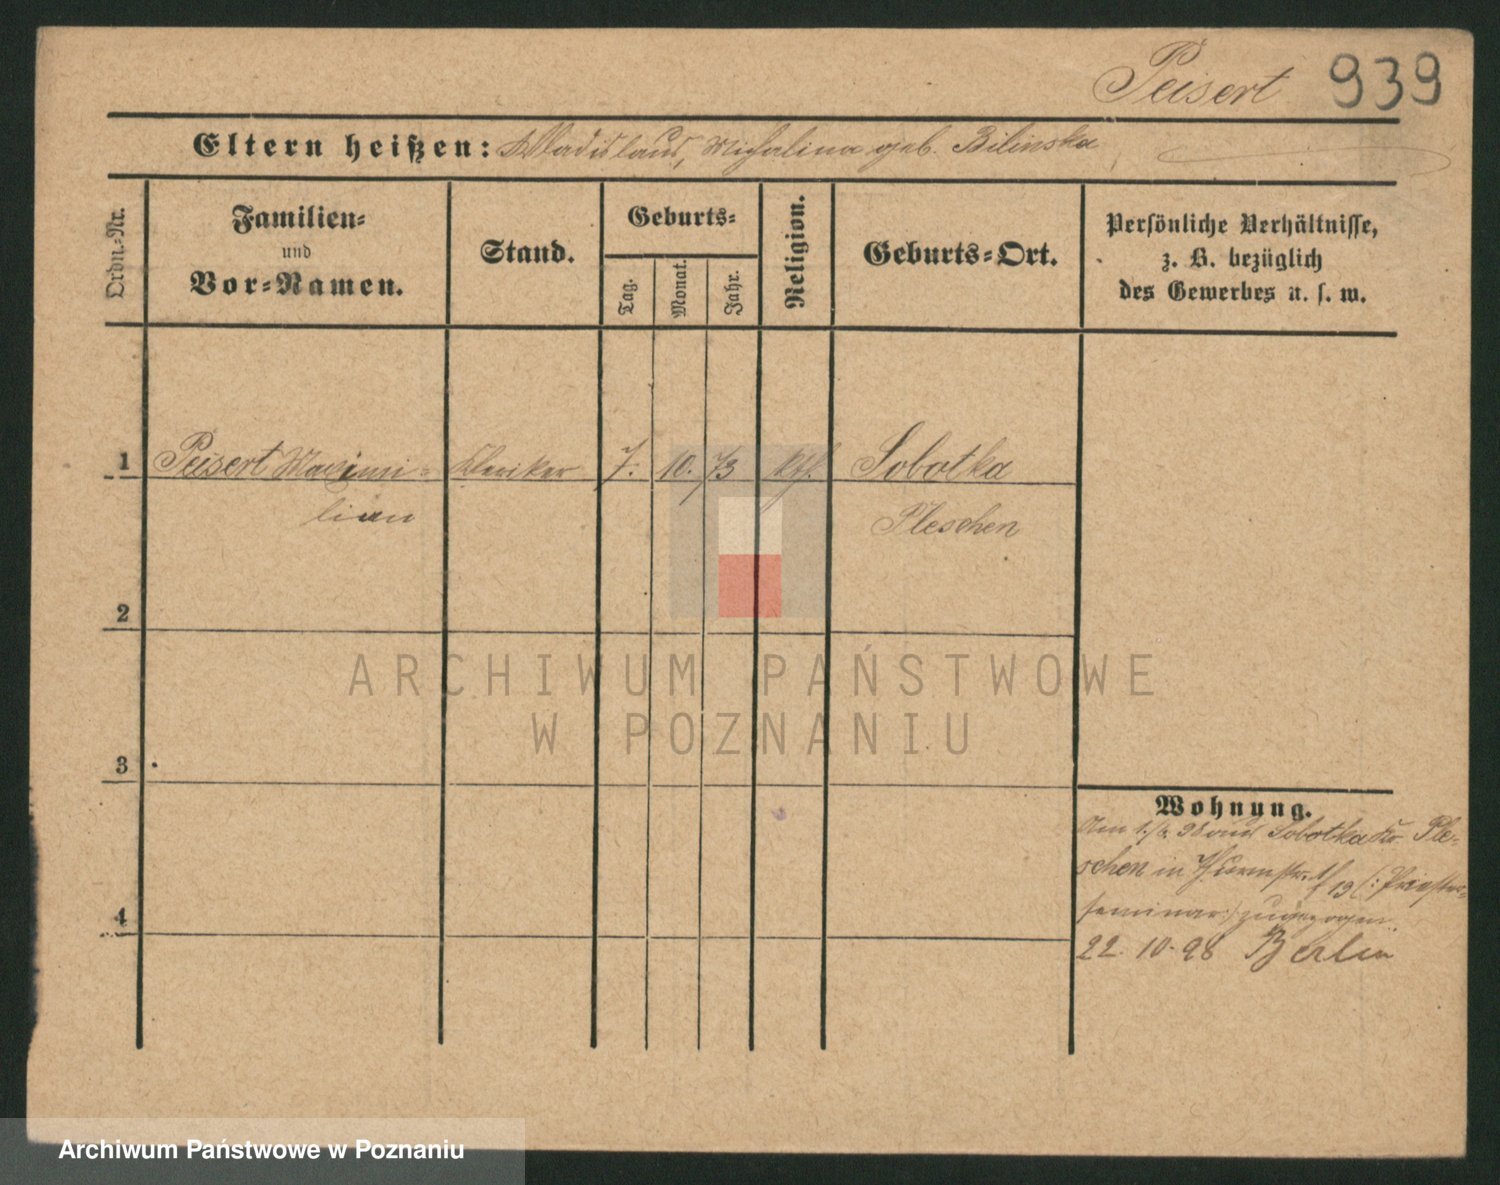 Peisert 939
Eltern heißen: Wladislaus, Michalina geb. Bilinska
Ordn.-Nr.
Familien-
und
Vor-Namen.
Stand.
Geburts-
Tag.
Monat.
Jahr.
Religion.
Geburts-Ort.
Persönliche Verhältnisse,
z. B. bezüglich
des Gewerbes u. s. w.
1 Peisert Maximi- Kleriker 7. 10. 73 kth. Sobotka
lian Pleschen
2
ARCHIWUM PAŃSTWOWE
W POZNANIU
3
Wohnung.
Am 1. 98 aus Sobotka Kr. Ple-
schen in 13 (: Priester-
seminar :) zugezogen
4
22. 10. 98 Berlin
Archiwum Państwowe w Poznaniu